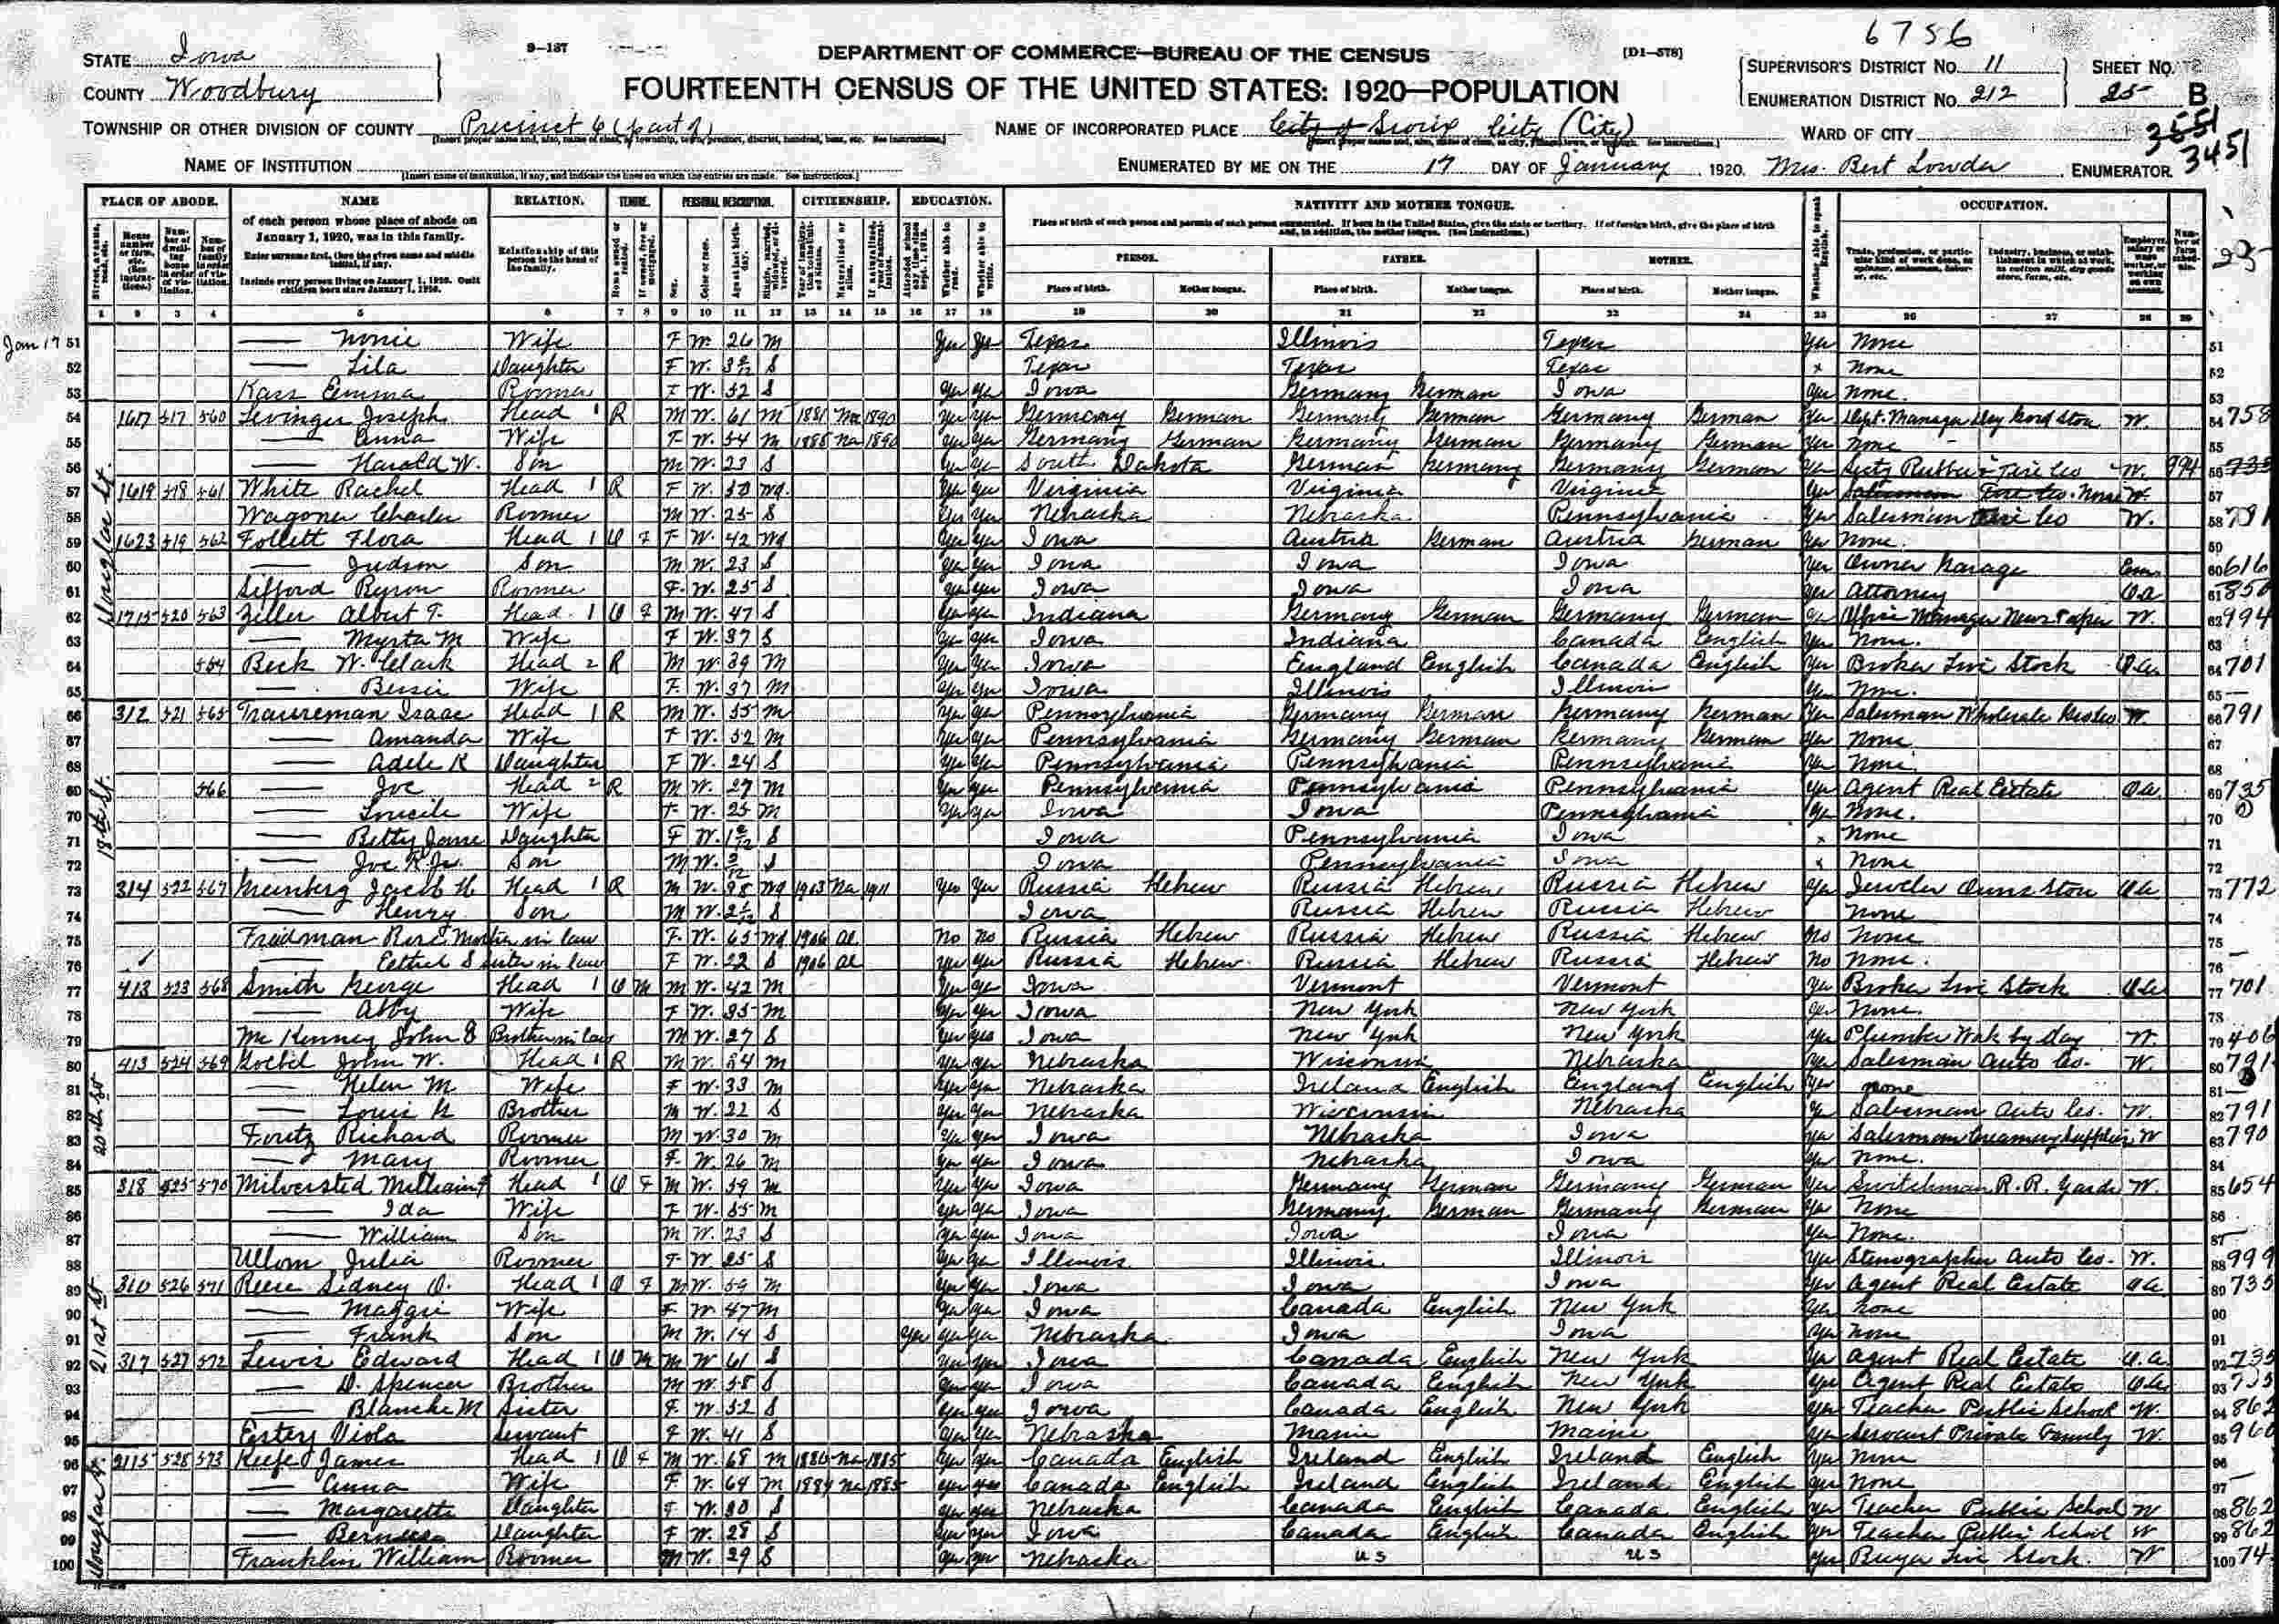 6756
STATE Iowa
9-137
DEPARTMENT OF COMMERCE—BUREAU OF THE CENSUS
[D1-578]
SUPERVISOR'S DISTRICT No. 11 SHEET No.
COUNTY Woodbury
FOURTEENTH CENSUS OF THE UNITED STATES: 1920—POPULATION
ENUMERATION DISTRICT No. 212 25 B
TOWNSHIP OR OTHER DIVISION OF COUNTY Precinct 6 (part of)
NAME OF INCORPORATED PLACE City of Sioux City (City)
WARD OF CITY
3551
3451
NAME OF INSTITUTION
ENUMERATED BY ME ON THE 17 DAY OF January, 1920. Mrs. Bert Lowder, ENUMERATOR.
PLACE OF ABODE. NAME RELATION. TENURE. PERSONAL DESCRIPTION. CITIZENSHIP. EDUCATION. NATIVITY AND MOTHER TONGUE. OCCUPATION.
of each person whose place of abode on January 1, 1920, was in this family.
PERSON. FATHER. MOTHER.
Place of birth. Mother tongue. Place of birth. Mother tongue. Place of birth. Mother tongue.
Jan 17 51 Wife F W 26 M Yes Yes Texas Illinois Texas Yes None
52 Lila Daughter F W S Texas Texas Texas x None
53 Kass Emma Roomer F W 32 S Yes Yes Iowa Germany German Iowa Yes None
54 1617 517 560 Levinger Joseph Head 1 R M W 61 M 1881 Na 1890 Yes Yes Germany German Germany German Germany German Yes Dept. Manager Dry Good Store W. 758
55 Anna Wife F W 54 M 1888 Na 1890 Yes Yes Germany German Germany German Germany German Yes None
56 Harold W. Son M W 23 S Yes Yes South Dakota German Germany Germany German Yes Rubber Tire Co W. 994
57 1619 518 561 White Rachel Head 1 R F W 50 Wd Yes Yes Virginia Virginia Virginia Yes W
58 Wagoner Charles Roomer M W 25 S Yes Yes Nebraska Nebraska Pennsylvania Yes Salesman Tire Co W. 791
59 1623 519 562 Follett Flora Head 1 O F F W 42 Wd Yes Yes Iowa Austria German Austria German Yes None
60 Judson Son M W 23 S Yes Yes Iowa Iowa Iowa Yes Owner Garage Em 616
61 Sifford Byron Roomer F W 25 S Yes Yes Iowa Iowa Iowa Yes Attorney Oa 850
62 1715 520 563 Zeller Albert T. Head 1 O F M W 47 S Yes Yes Indiana Germany German Germany German Yes Office Manager News Paper W. 994
63 Myrta M Wife F W 37 S Yes Yes Iowa Indiana Canada English Yes None
64 564 Beck W. Clark Head 2 R M W 39 M Yes Yes Iowa England English Canada English Yes Broker Live Stock O.a. 701
65 Bessie Wife F W 37 M Yes Yes Iowa Illinois Illinois Yes None
66 312 521 565 Traureman Isaac Head 1 R M W 55 M Yes Yes Pennsylvania Germany German Germany German Yes Salesman Wholesale W. 791
67 Amanda Wife F W 52 M Yes Yes Pennsylvania Germany German Germany German Yes None
68 Adele K Daughter F W 24 S Yes Yes Pennsylvania Pennsylvania Pennsylvania Yes None
69 566 Joe Head 2 R M W 27 M Yes Yes Pennsylvania Pennsylvania Pennsylvania Yes Agent Real Estate Oa 735
70 Lucile Wife F W 25 M Yes Yes Iowa Iowa Pennsylvania Yes None
71 Betty Jane Daughter F W S Iowa Pennsylvania Iowa x None
72 Joe R Jr. Son M W S Iowa Pennsylvania Iowa x None
73 314 522 567 Meinberg Jacob H Head 1 R M W 38 Wd 1903 Na 1911 Yes Yes Russia Hebrew Russia Hebrew Russia Hebrew Yes Jeweler Owns Store Oa 772
74 Henry Son M W S Iowa Russia Hebrew Russia Hebrew None
75 Fredman Rose Mother in law F W 65 Wd 1906 Al No No Russia Hebrew Russia Hebrew Russia Hebrew No None
76 Esthel Sister in law F W 22 S 1906 Al Yes Yes Russia Hebrew Russia Hebrew Russia Hebrew No None
77 413 523 568 Smith George Head 1 O M M W 42 M Yes Yes Iowa Vermont Vermont Yes Broker Live Stock Oa 701
78 Abby Wife F W 35 M Yes Yes Iowa New York New York Yes None
79 McKenney John Brother in law M W 27 S Yes Yes Iowa New York New York Yes Plumber Work by Day W. 406
80 413 524 569 Goebel John W. Head 1 R M W 34 M Yes Yes Nebraska Wisconsin Nebraska Yes Salesman Auto Co. W. 791
81 Helen M Wife F W 33 M Yes Yes Nebraska Ireland English England English Yes None
82 Louis G Brother M W 22 S Yes Yes Nebraska Wisconsin Nebraska Yes Salesman Auto Co. W. 791
83 Foutz Richard Roomer M W 30 M Yes Yes Iowa Nebraska Iowa Yes Salesman Creamery Supplies W 790
84 Mary Roomer F W 26 M Yes Yes Iowa Nebraska Iowa Yes None
85 318 525 570 Milversted William F Head 1 O F M W 59 M Yes Yes Iowa Germany German Germany German Yes Switchman R.R. Yards W. 654
86 Ida Wife F W 55 M Yes Yes Iowa Germany German Germany German Yes None
87 William Son M W 23 S Yes Yes Iowa Iowa Iowa Yes None
88 Ullom Julia Roomer F W 25 S Yes Yes Illinois Illinois Illinois Yes Stenographer Auto Co. W. 999
89 310 526 571 Reese Sidney O. Head 1 O F M W 59 M Yes Yes Iowa Iowa Iowa Yes Agent Real Estate Oa 735
90 Maggie Wife F W 47 M Yes Yes Iowa Canada English New York Yes None
91 Frank Son M W 14 S Yes Yes Yes Nebraska Iowa Iowa Yes None
92 317 527 572 Lewis Edward Head 1 O M M W 61 S Yes Yes Iowa Canada English New York Yes Agent Real Estate O.a. 735
93 D. Spencer Brother M W 58 S Yes Yes Iowa Canada English New York Yes Agent Real Estate Oa 735
94 Blanche M Sister F W 52 S Yes Yes Iowa Canada English New York Yes Teacher Public School W. 862
95 Estey Viola Servant F W 41 S Yes Yes Nebraska Maine Maine Yes Servant Private Family W. 960
96 2115 528 573 Keefe James Head 1 O F M W 68 M 1880 Na 1885 Yes Yes Canada English Ireland English Ireland English Yes None
97 Anna Wife F W 64 M 1884 Na 1885 Yes Yes Canada English Ireland English Ireland English Yes None
98 Margarette Daughter F W 30 S Yes Yes Nebraska Canada English Canada English Yes Teacher Public School W 862
99 Daughter F W 28 S Yes Yes Iowa Canada English Canada English Yes Teacher Public School W 862
100 Franklin William Roomer M W 29 S Yes Yes Nebraska US US Yes Buyer Live Stock W 74
Douglas St.
18th St.
20th St
21st St
Douglas St.